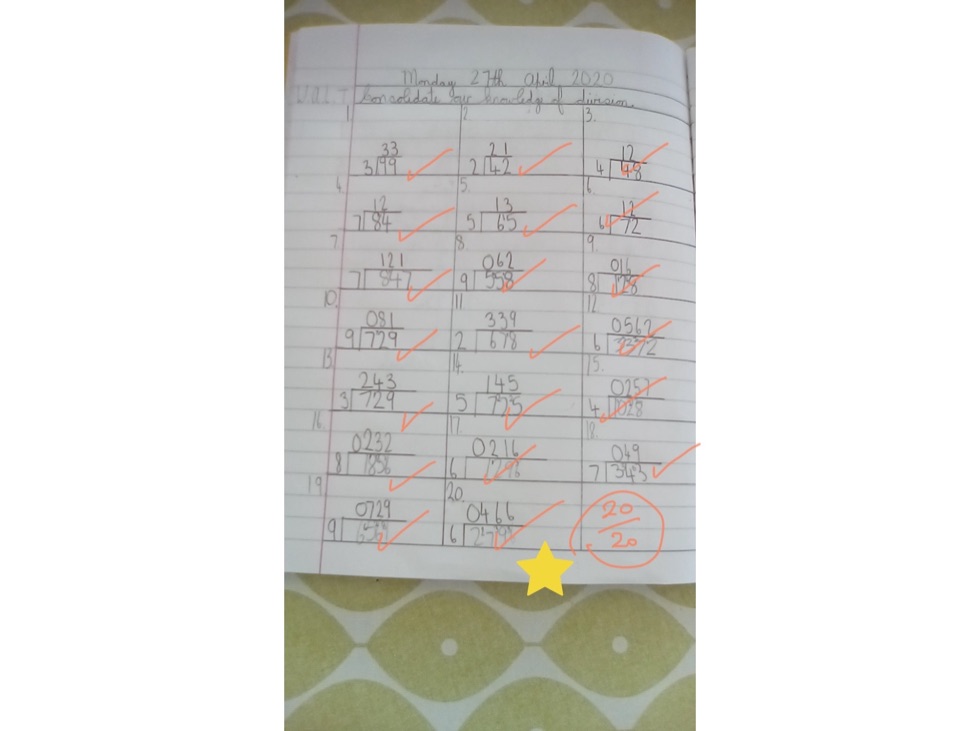 Monday 27th April 2020
W.A.L.T Consolidate your knowledge of division.
1. 2. 3.
33 21 12
3 99 2 42 4 48
4. 5. 6.
12 13 12
7 84 5 65 6 72
7 8 9.
121 062 016
7 847 9 558 8 128
10. 11 12.
081 339 0562
9 729 2 678 6 3372
13 14. 15.
243 145 0257
3 729 5 725 4 1028
16. 17. 18.
0232 0216 049
8 1856 6 1296 7 343
19 20.
0729 0466
9 6 20
20